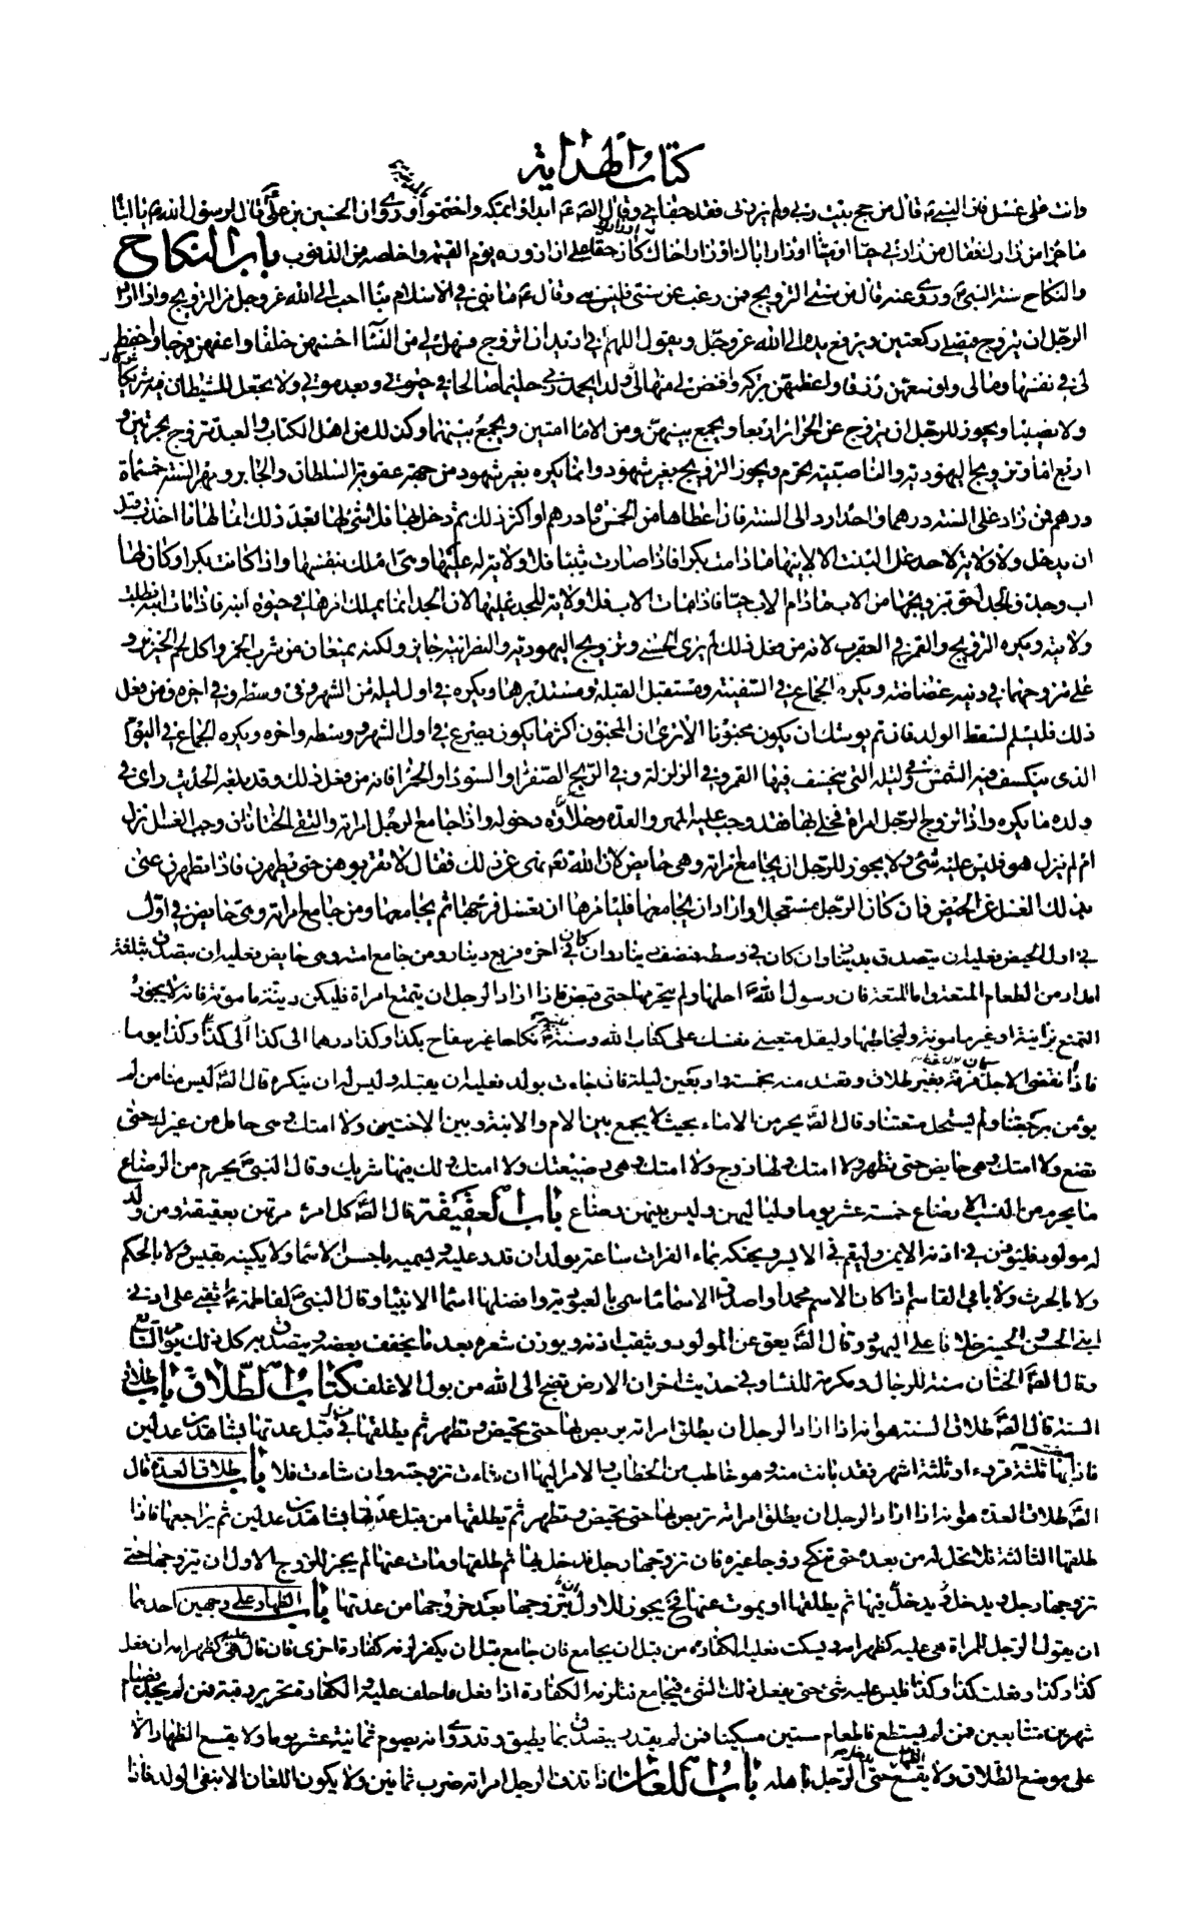 كتاب الهداية
وانت على غسل فان النبي ص قال من حج بيت ربي ولم يزرني فقد جفاني وقال الصادق ع ابدؤا بمكة واختموا وروي ان الحسين بن علي ع قال لرسول الله ص يا ابتا
ما جزا من زارك فقال من زارني حيا او ميتا او زار اباك او زار اخاك كان حقا علي ان ازوره يوم القيمة واخلصه من الذنوب باب النكاح
والنكاح سنة النبي ص وروي عنه قال من سنتي التزويج فمن رغب عن سنتي فليس مني وقال ع ما بني في الاسلام بنا احب الى الله عز وجل من التزويج واذا اراد
الرجل ان يتزوج فيصلي ركعتين ويرفع يده الى الله عز وجل ويقول اللهم اني اريد ان اتزوج فسهل لي من النسا احسنهن خلقا واعفهن فرجا واحفظهن
لي في نفسها ومالي واوسعهن رزقا واعظمهن بركة واقض لي منها ولدا تجعله لي خلفا صالحا في حيوتي وبعد موتي ولا تجعل للشيطان فيه شريكا
ولا نصيبا ويجوز للرجل ان يتزوج من الحرائر اربعا ويجمع بينهن ومن الاما امتين ويجمع بينهما وكذلك من اهل الكتاب والعبد يتزوج بحرتين و
اربع اما وتزويج اليهودية والناصبية يحرم ويجوز التزويج بغير شهود وانما يكره بغير شهود من جهة عقوبة السلطان والجابر ومهر السنة خمسمائة
درهم فمن زاد على السنة درهما واحدا رد الى السنة فان اعطاها من الخمس مائة درهم او اكثر ذلك ثم دخل بها فلا شئ لها بعد ذلك انما لها ما اخذت قبل
ان يدخل ولا ولاية لاحد على البنت الا لابيها ما دامت بكرا فاذا صارت ثيبا فلا ولاية له عليها وهي املك بنفسها واذا كانت بكرا وكان لها
اب وجد فالجد احق بتزويجها من الاب ما دام الاب حيا فاذا مات الاب فلا ولاية للجد عليها لان الجد انما يملك امرها في حيوة ابنه فاذا مات ابنه بطلت
ولايته ويكره التزويج والقمر في العقرب لانه من فعل ذلك لم يرى الحسنى وتزويج اليهودية والنصرانية جايز ولكنه يمنعان من شرب الخمر واكل لحم الخنزير و
على متزوجهما في دينه غضاضة ويكره الجماع في السفينة ومستقبل القبلة ومستدبرها ويكره في اول ليلة من الشهر وفي وسطه وفي اخره ومن فعل
ذلك فليسلم لسقط الولد فان تم يوشك ان يكون مجنونا الا ترى ان المجنون اكثر ما يكون يصرع في اول الشهر ووسطه واخره ويكره الجماع في اليوم
الذي ينكسف فيه الشمس وفي ليلة التي ينخسف فيها القمر وفي الزلزلة وفي الريح الصفرا والسودا والحمرا فانه من فعل ذلك وقد بلغه الحديث راى في
ولده ما يكره واذا تزوج الرجل امراة فخلى بها فقد وجب عليه المهر والعدة وخلاؤه دخوله واذا جامع الرجل امراته والتقى الختانان وجب الغسل نزل
ام لم ينزل هو فليس عليه شئ ولا يجوز للرجل ان يجامع امراته وهي حايض لان الله تع نهى عن ذلك فقال لا تقربوهن حتى يطهرن فاذا تطهرن عنى
بذلك الغسل عن الحيض فان كان الرجل مستعجلا واراد ان يجامعها فليامرها ان تغسل فرجها ثم يجامعها ومن جامع امراته وهي حايض في اول
في اول الحيض فعليه ان يتصدق بدينار وان كان في وسطه فنصف دينار وان كان في اخره فربع دينار ومن جامع امته وهي حايض فعليه ان يتصدق بثلثة
امداد من الطعام المتعة واما المتعة فان رسول الله ص احلها ولم يحرمها حتى قبض فاذا اراد الرجل ان يتمتع امراة فليكن دينة مامونة فانه لا يجوز
التمتع بزانية او غير مامونة وليخاطبها وليقل متعيني نفسك على كتاب الله وسنة نبيه نكاحا غير سفاح بكذا وكذا درهما الى كذا وكذا يوما
فاذا انقضى الاجل فرقة بغير طلاق وتعتد منه بخمسة واربعين ليلة فان جاءت بولد فعليه ان يقبله وليس له ان ينكره قال الص ليس منا من لم
يؤمن برجعتنا ولم يستحل متعتنا وقال الص يحرمن الاماء بحيث لا يجمع بين الام والابنة وبين الاختين ولا امتك وهي حامل من غيرك حتى
تضع ولا امتك وهي حايض حتى تطهر ولا امتك ولها زوج ولا امتك وهي رضيعتك ولا امتك ولك فيها شريك وقال النبي ص يحرم من الرضاع
ما يحرم من النسب الا رضاع خمسة عشر يوما ولياليهن وليس بينهن رضاع باب العقيقة قال الص كل امرئ مرتهن بعقيقته ومن ولد
له مولود فليؤذن في اذنه الايمن وليقم في الايسر ويحنكه بماء الفرات ساعة يولد ان قدر عليه ويسميه باحسن الاسما ولا يكنيه بعيسى ولا بالحكم
ولا بالحرث ولا بابي القاسم اذا كان الاسم محمدا واصدق الاسما ما سمي بالعبودية وافضلها اسما الانبيا وقال النبي ص لفاطمة ع اثقبي على اذني
ابني الحسن والحسين خلافا على اليهود وقال الص يعق عن المولود ويثقب اذنه ويوزن شعره بعد ما يخفف بفضة ويتصدق به كل ذلك يوم السابع
وقال الص الختان سنة للرجال ومكرمة للنسا وفي حديث اخر ان الارض تضج الى الله من بول الاغلف كتاب الطلاق باب طلاق
السنة قال الص طلاق السنة هو انه اذا اراد الرجل ان يطلق امراته تربص بها حتى تحيض وتطهر ثم يطلقها في قبل عدتها بشاهدين عدلين
فاذا مضت بها ثلثة قروء او ثلثة اشهر فقد بانت منه وهو خاطب من الخطاب والامر اليها ان شاءت تزوجته وان شاءت فلا باب طلاق العدة قال
الص طلاق العدة هو انه اذا اراد الرجل ان يطلق امراته تربص بها حتى تحيض وتطهر ثم يطلقها من قبل عدتها بشاهدين عدلين ثم يراجعها فاذا
طلقها الثالثة فلا تحل له من بعده حتى تنكح زوجا غيره فان تزوجها رجل فدخل بها ثم طلقها ومات عنها لم يجز للزوج الاول ان يتزوجها حتى
تزوجها رجل ويدخل ويدخل فيها ثم يطلقها او يموت عنها فح يجوز للاول ان يتزوجها بعد خروجها من عدتها باب الظهار وعلى وجهين احدهما
ان يقول الرجل للمراة هي عليه كظهر امه ويسكت فعليه الكفارة من قبل ان يجامع فان جامع قبل ان يكفر لزمه كفارة اخرى فان قال هي عليه كظهر امه ان فعل
كذا وكذا وفعلت كذا وكذا فليس عليه شئ حتى يفعل ذلك الشئ فيجامع فتلزمه الكفارة اذا فعل ما حلف عليه والكفارة تحرير رقبة فمن لم يجد فصيام
شهرين متتابعين فمن لم يستطع فاطعام ستين مسكينا فمن لم يقدر يتصدق بما يطيق وقد روي انه يصوم ثمانية عشر يوما ولا يقع الظهار الا
على موضع الطلاق ولا يقع حتى الرجل باهله باب اللعان اذا قذف الرجل امراته ضرب ثمانين ولا يكون اللعان الا بنفي الولد فاذا